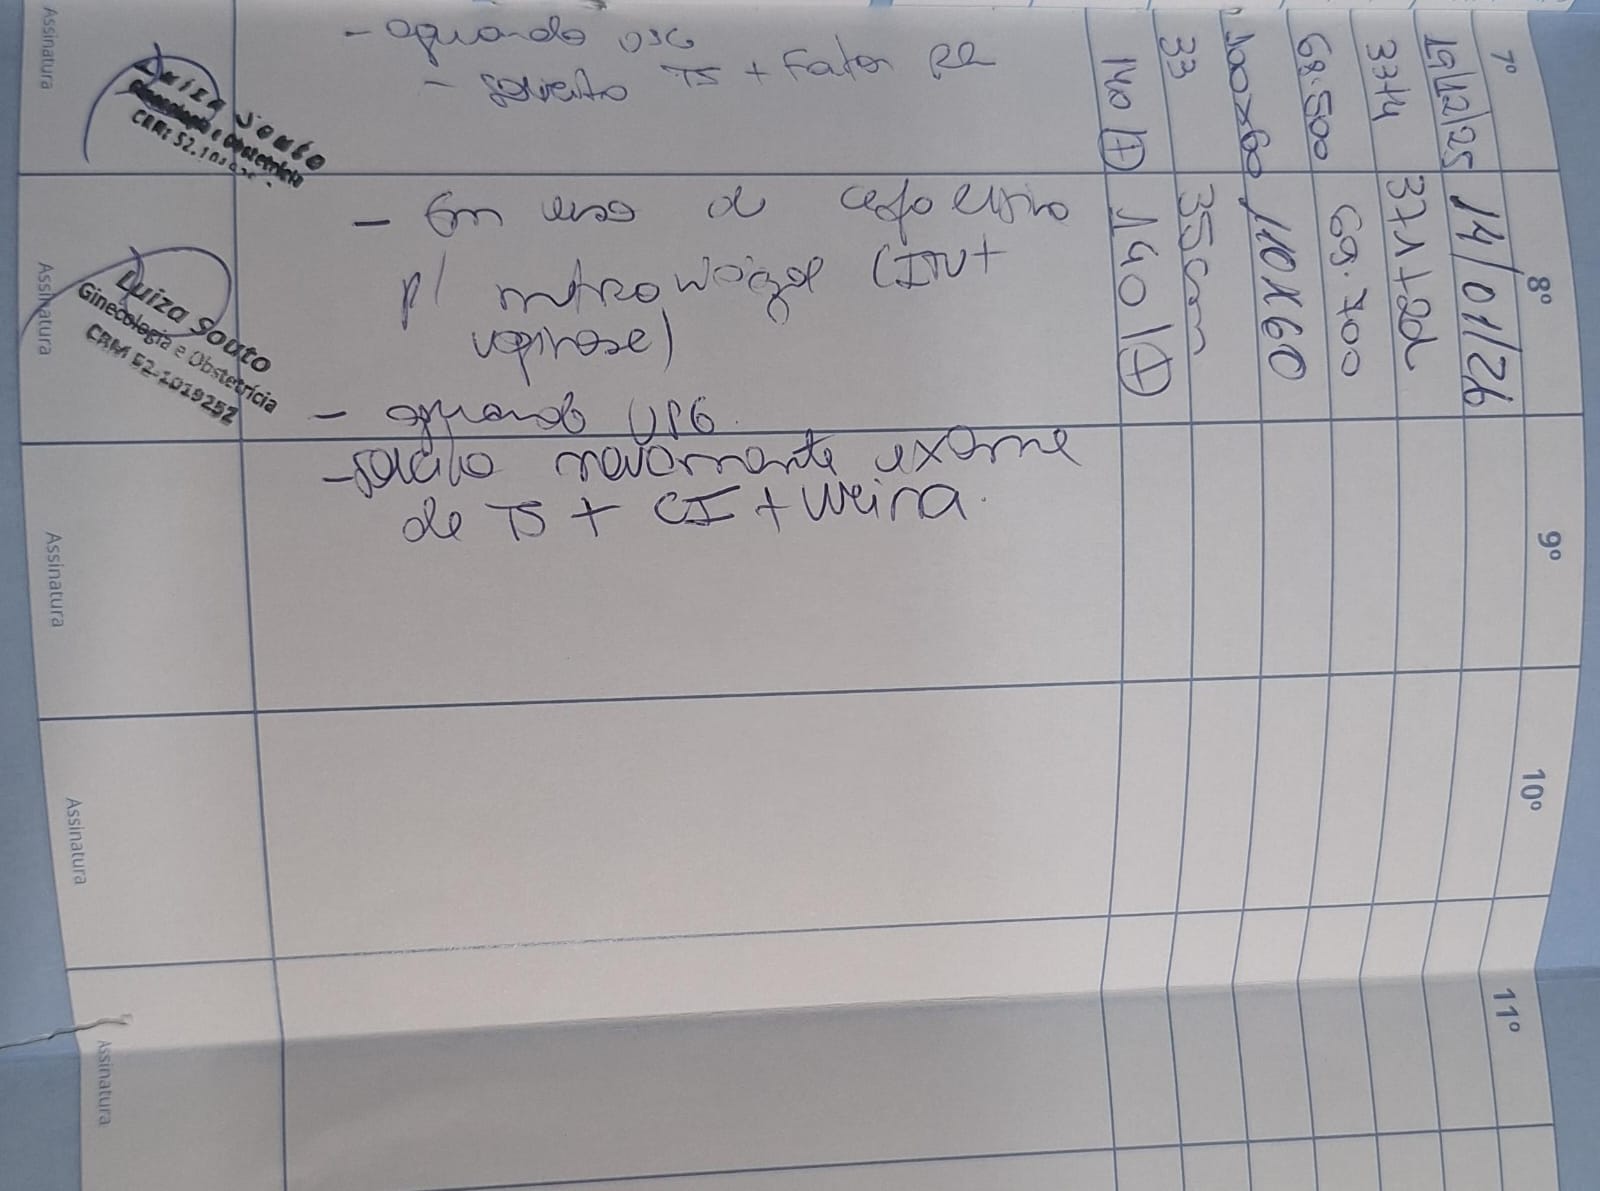 7º
19/12/25
33+4
68.500
100x60
33
140 (+)
- aguardo USG
- solicito TS + Fator RH
Luiza Souto
Ginecologia e Obstetrícia
Assinatura
8º
14/01/26
37+2d
69.700
110x60
35cm
140 | (+)
- Em uso de cefalexina
p/ metronidazol (ITU +
vaginose)
- aguardo USG.
- solicito novamente exame
de TS + CI + urina.
Luiza Souto
Ginecologia e Obstetrícia
CRM 52-1019252
Assinatura
9º
Assinatura
10º
Assinatura
11º
Assinatura